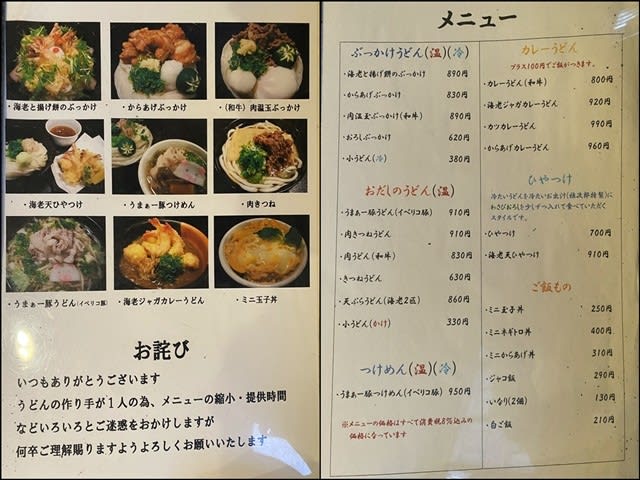 ・海老と揚げ餅のぶっかけ
・からあげぶっかけ
・(和牛)肉温玉ぶっかけ
・海老天ひやつけ
・うまぁー豚つけめん
・肉きつね
・うまぁー豚うどん(イベリコ豚)
・海老ジャガカレーうどん
・ミニ玉子丼
お詫び
いつもありがとうございます
うどんの作り手が1人の為、メニューの縮小・提供時間
などいろいろとご迷惑をおかけしますが
何卒ご理解賜りますようよろしくお願いいたします
メニュー
ぶっかけうどん(温)(冷)
・海老と揚げ餅のぶっかけ 890円
・からあげぶっかけ 830円
・肉温玉ぶっかけ(和牛) 890円
・おろしぶっかけ 620円
・小うどん(冷) 380円
おだしのうどん(温)
・うまぁー豚うどん(イベリコ豚) 910円
・肉きつねうどん 910円
・肉うどん(和牛) 830円
・きつねうどん 630円
・天ぷらうどん(海老2匹) 860円
・小うどん(かけ) 330円
つけめん(温)(冷)
・うまぁー豚つけめん(イベリコ豚) 950円
※メニューの価格はすべて消費税8%込みの
価格になっています
カレーうどん
プラス100円でご飯がつきます。
・カレーうどん(和牛) 800円
・海老ジャガカレーうどん 920円
・カツカレーうどん 990円
・からあげカレーうどん 960円
ひやつけ
冷たいうどんを冷たいお出汁(雄次郎特製)に
わさびおろしを少しずつ入れて食べていただく
スタイルです。
・ひやつけ 700円
・海老天ひやつけ 910円
ご飯もの
・ミニ玉子丼 250円
・ミニネギトロ丼 400円
・ミニからあげ丼 310円
・ジャコ飯 290円
・いなり(2個) 130円
・白ご飯 210円